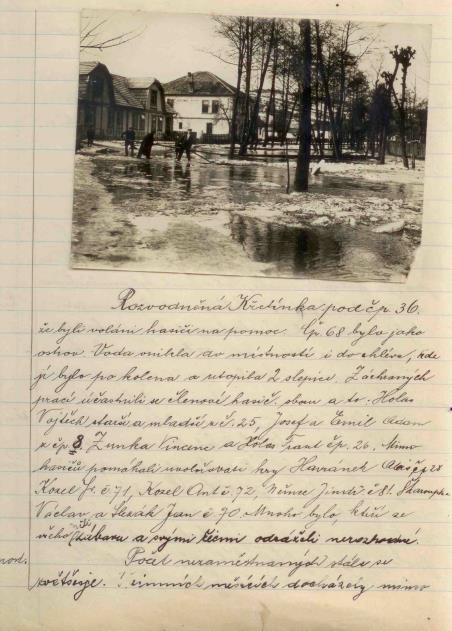 Rozvodněná Křetínka pod čp. 36.
že byli voláni hasiči na pomoc. Čp. 68 bylo jako
ostrov. Voda vnikla do místností i do chléva, kde
jí bylo po kolena a utopila 2 slepice. Záchranných
prací účastnili se členové hasič. sboru a to: Holas
Vojtěch starší a mladší z č. 25, Josef a Emil Adam
z čp 8, Zunka Vincenc a Holas Frant čp. 26. Mimo
hasičů pomáhali uvolňovati kry Havránek Alois čp 28
Kozel Fr. č. 71, Kozel Ant. č. 72, Jindř. č 81.
Václav a Jan č. 70. Mnoho bylo, kteří se
všeho báli a svými řečmi odráželi nerozhodné.
Počet nezaměstnaných stále se
zvětšuje. V zimních měsících docházely mimo